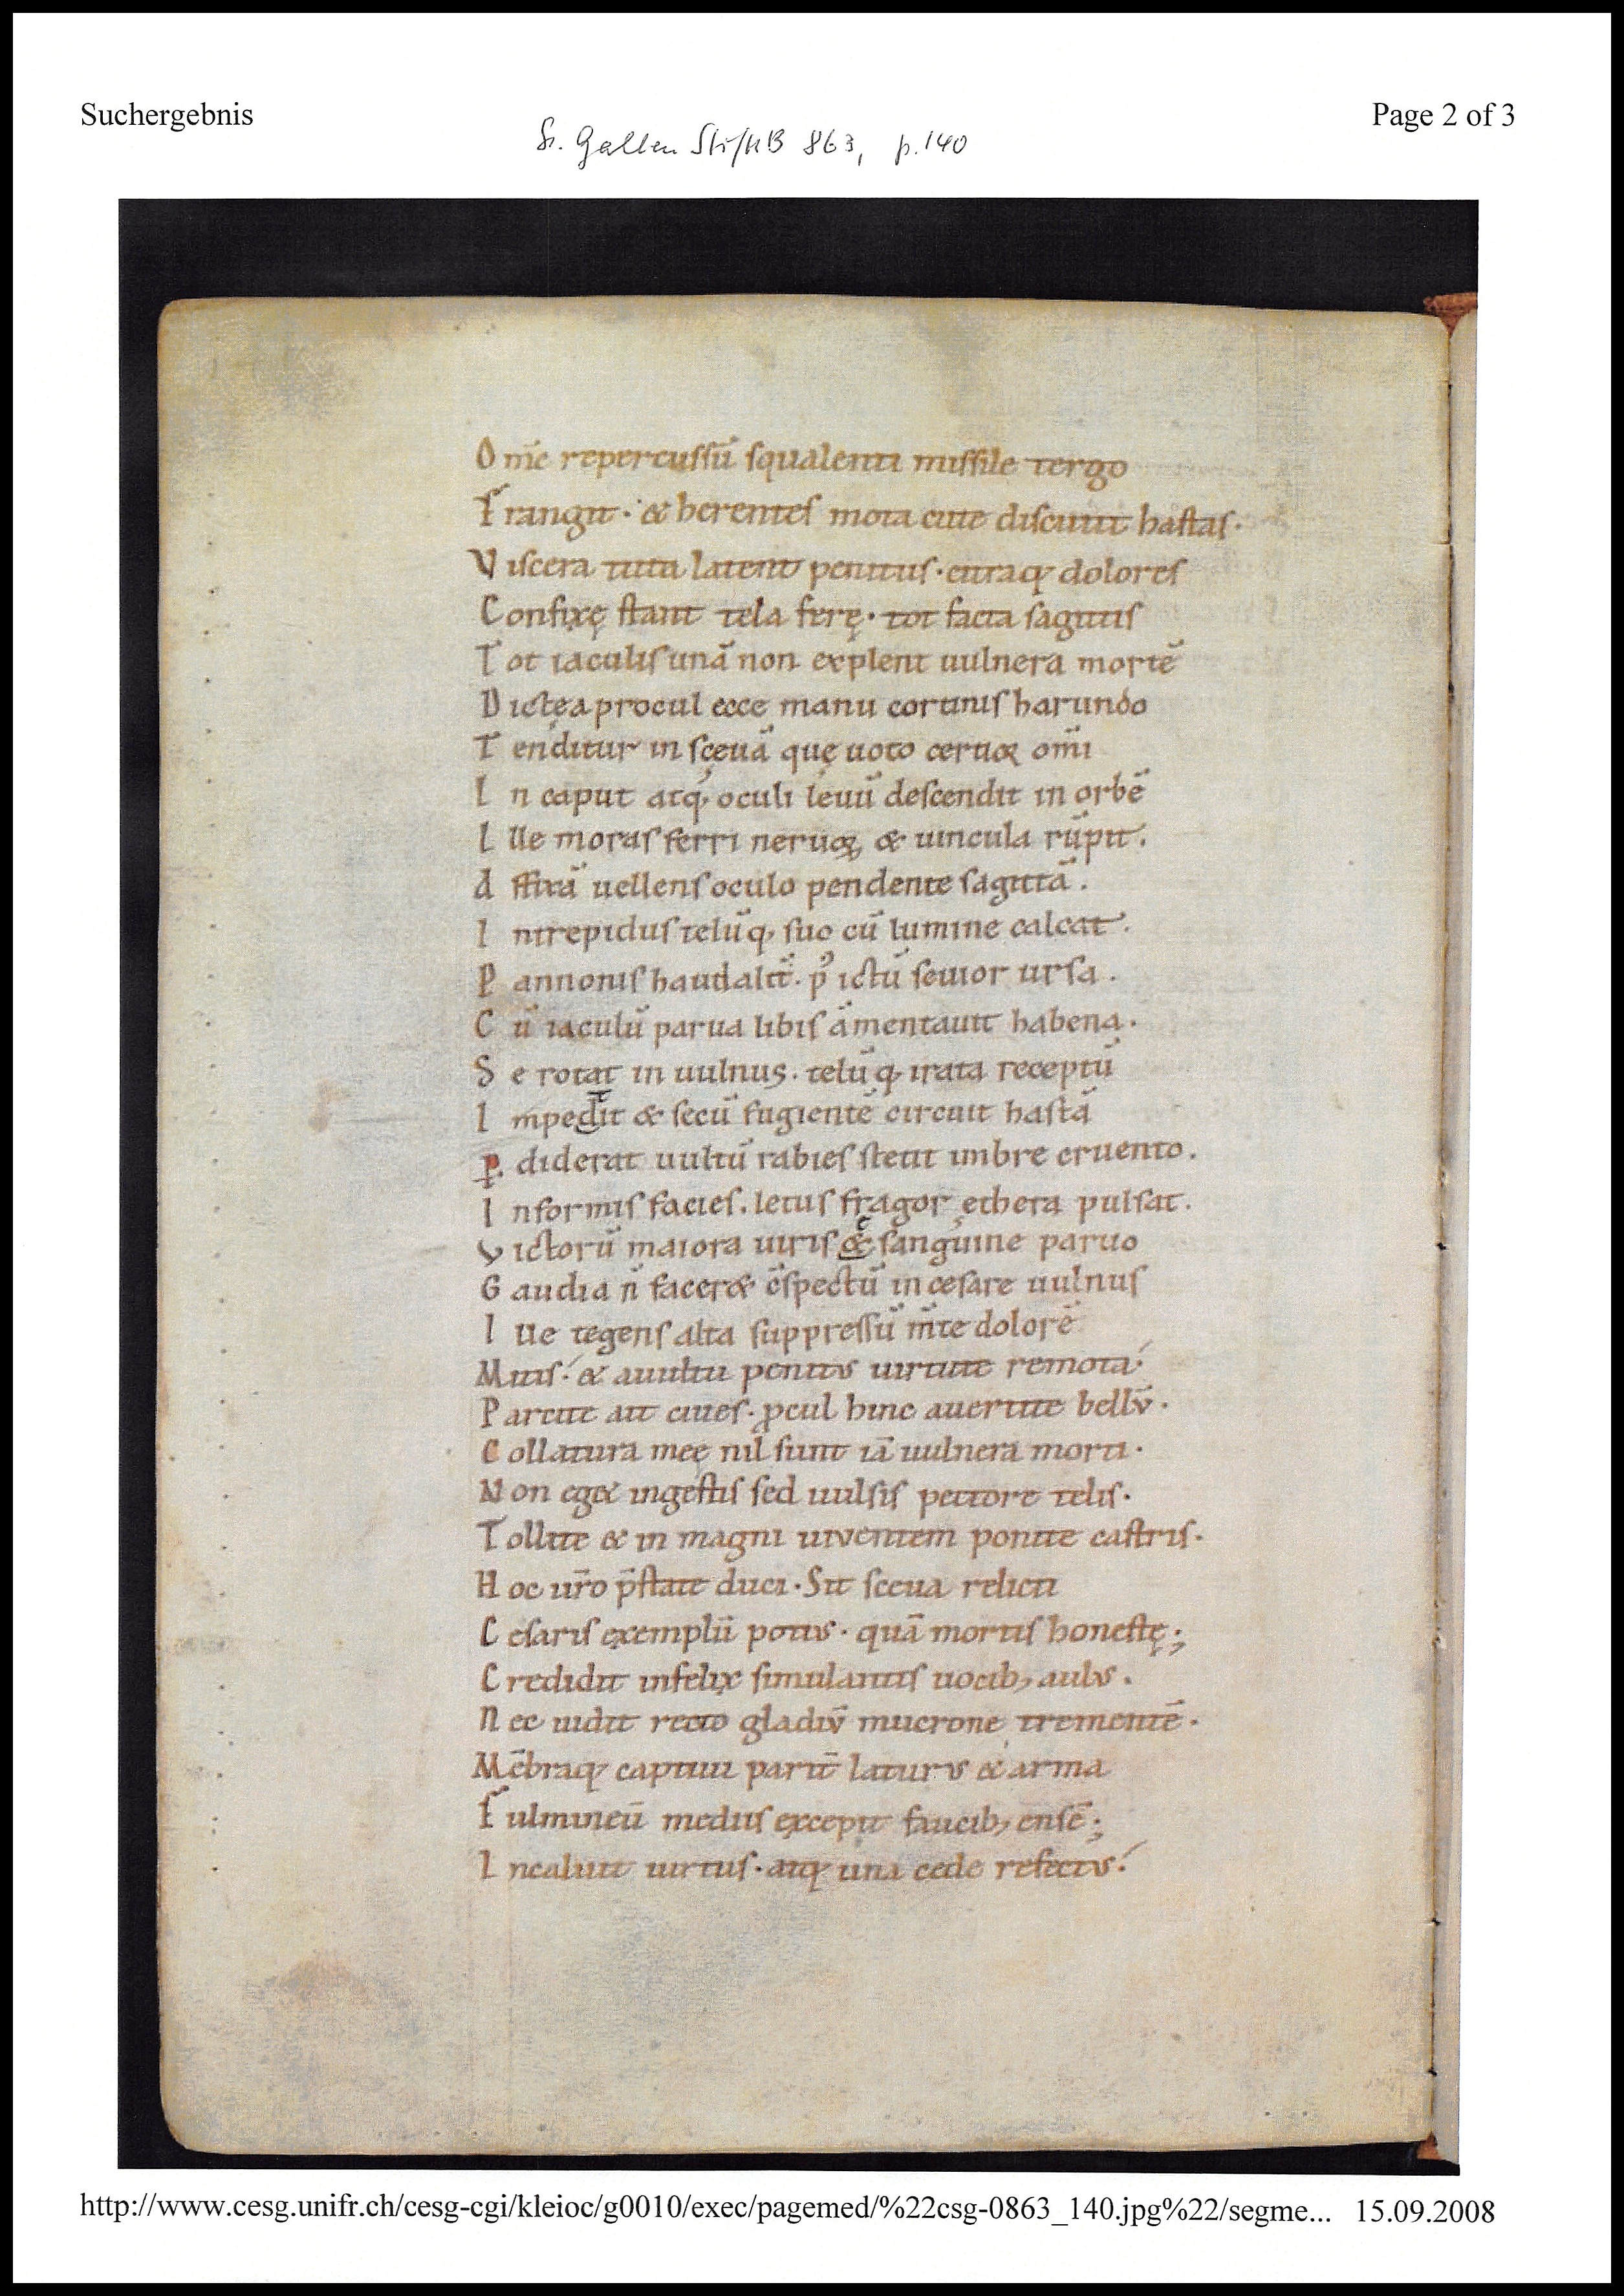 Suchergebnis
Page 2 of 3
St. Gallen StiftB 863, p. 140
O m̄e repercussū squalenti missile tergo
Frangit· & herentes mota cute discutit hastas·
Viscera tuta latent penitus· citraq; dolores
Confixę stant tela ferę· tot facta sagittis
Tot iaculis unā non explent uulnera mortē
Dictęa procul ecce manu cortinis harundo
Tenditur in scęuā quę uoto certior om̄i
In caput atq; oculi leuū descendit in orbē
Ille moras ferri neruoꝝ & uincula rūpit·
Affixā uellens oculo pendente sagittā.
Intrepidus telūq; suo cū lumine calcat·
Pannonis haud alit̄· p̾ ictū seuior ursa.
Cū iaculū parua libis āmentauit habena·
Se rotat in uulnus. telūq; irata receptū
Impedit & secū fugientē circuit hastā
ꝑdiderat uultū rabies stetit imbre cruento.
Informis facies. letus fragor ęthera pulsat.
Victorū maiora uiris & sanguine paruo
Gaudia n̄ facer& c̄spectū in cesare uulnus
Ille tegens alta suppressū m̄te dolorē
Mitis· & a uultu penitus uirtute remota·
Parcite ait ciues· ꝓcul hinc auertite bellū·
Collatura meę nil sunt iā uulnera morti·
Non eg& ingestis sed uulsis pectore telis·
Tollite & in magni uiventem ponite castris·
Hoc ur̄o p̄state duci· Sit sceua relicti
Cesaris exemplū potius· quā mortis honestę;
Credidit infelix simulantis uocib; aulus.
Nec uidit recto gladiū mucrone trementē·
Mēbraq; captiui parit̄ laturus & arma
Fulmineū mediis excepit faucib; ensē;
Incaluit uirtus· atq; una cede refectus·
http://www.cesg.unifr.ch/cesg-cgi/kleioc/g0010/exec/pagemed/%22csg-0863_140.jpg%22/segme...
15.09.2008